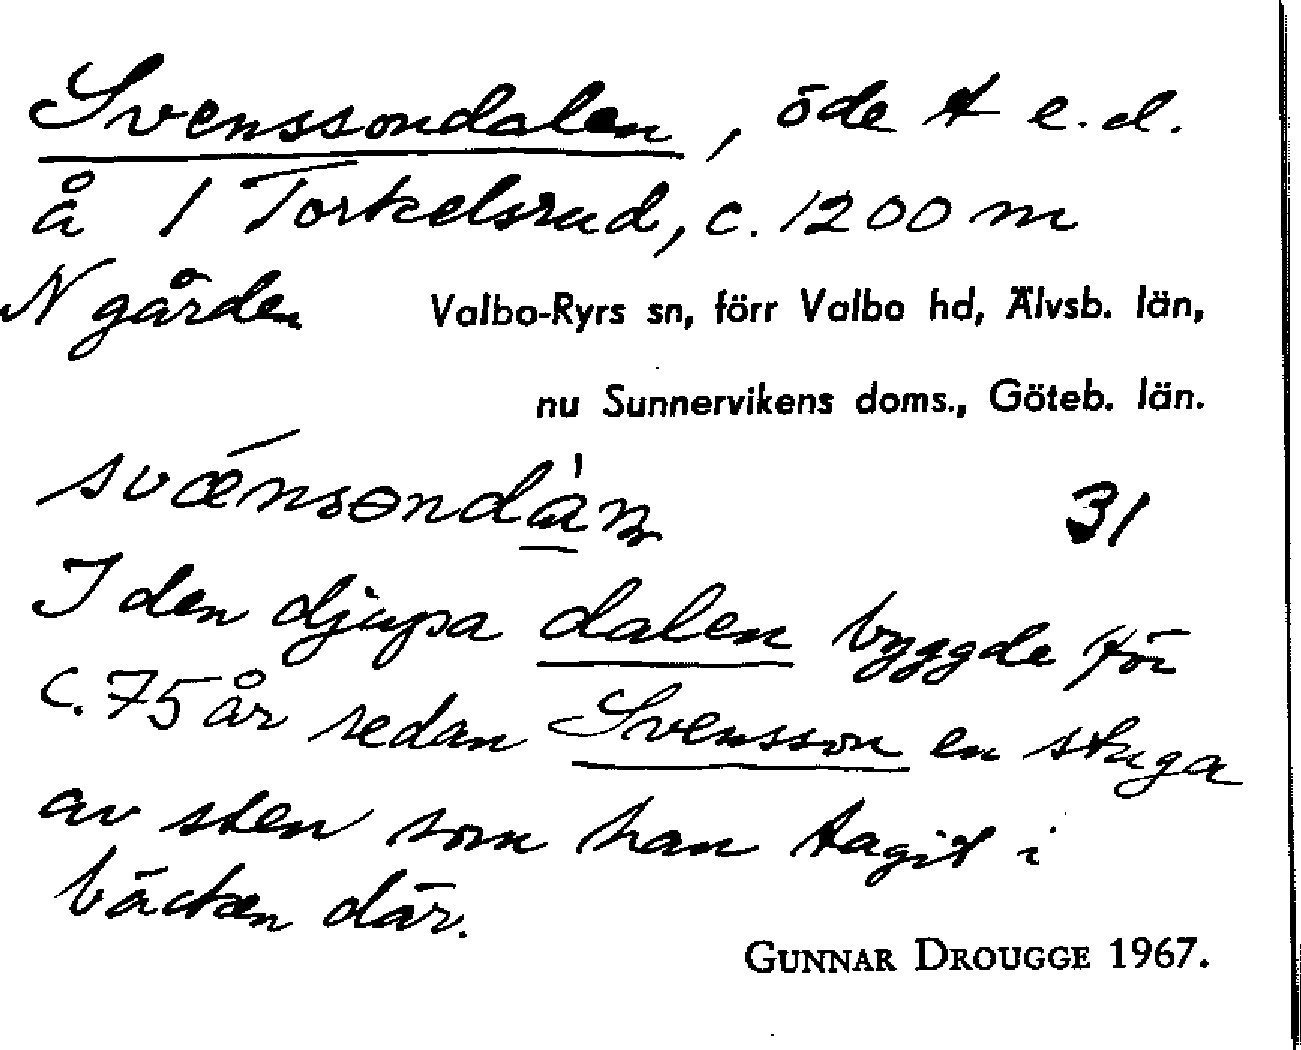 Svenssondalen, öde t e.d.
å 1 Torkelsrud, c. 1200 m
N gården Valbo-Ryrs sn, förr Valbo hd, Älvsb. län,
nu Sunnervikens doms., Göteb. län.
31
I den djupa dalen byggde för
c. 75 år sedan Svensson en stuga
av sten som han tagit i
bäcken där.
GUNNAR DROUGGE 1967.